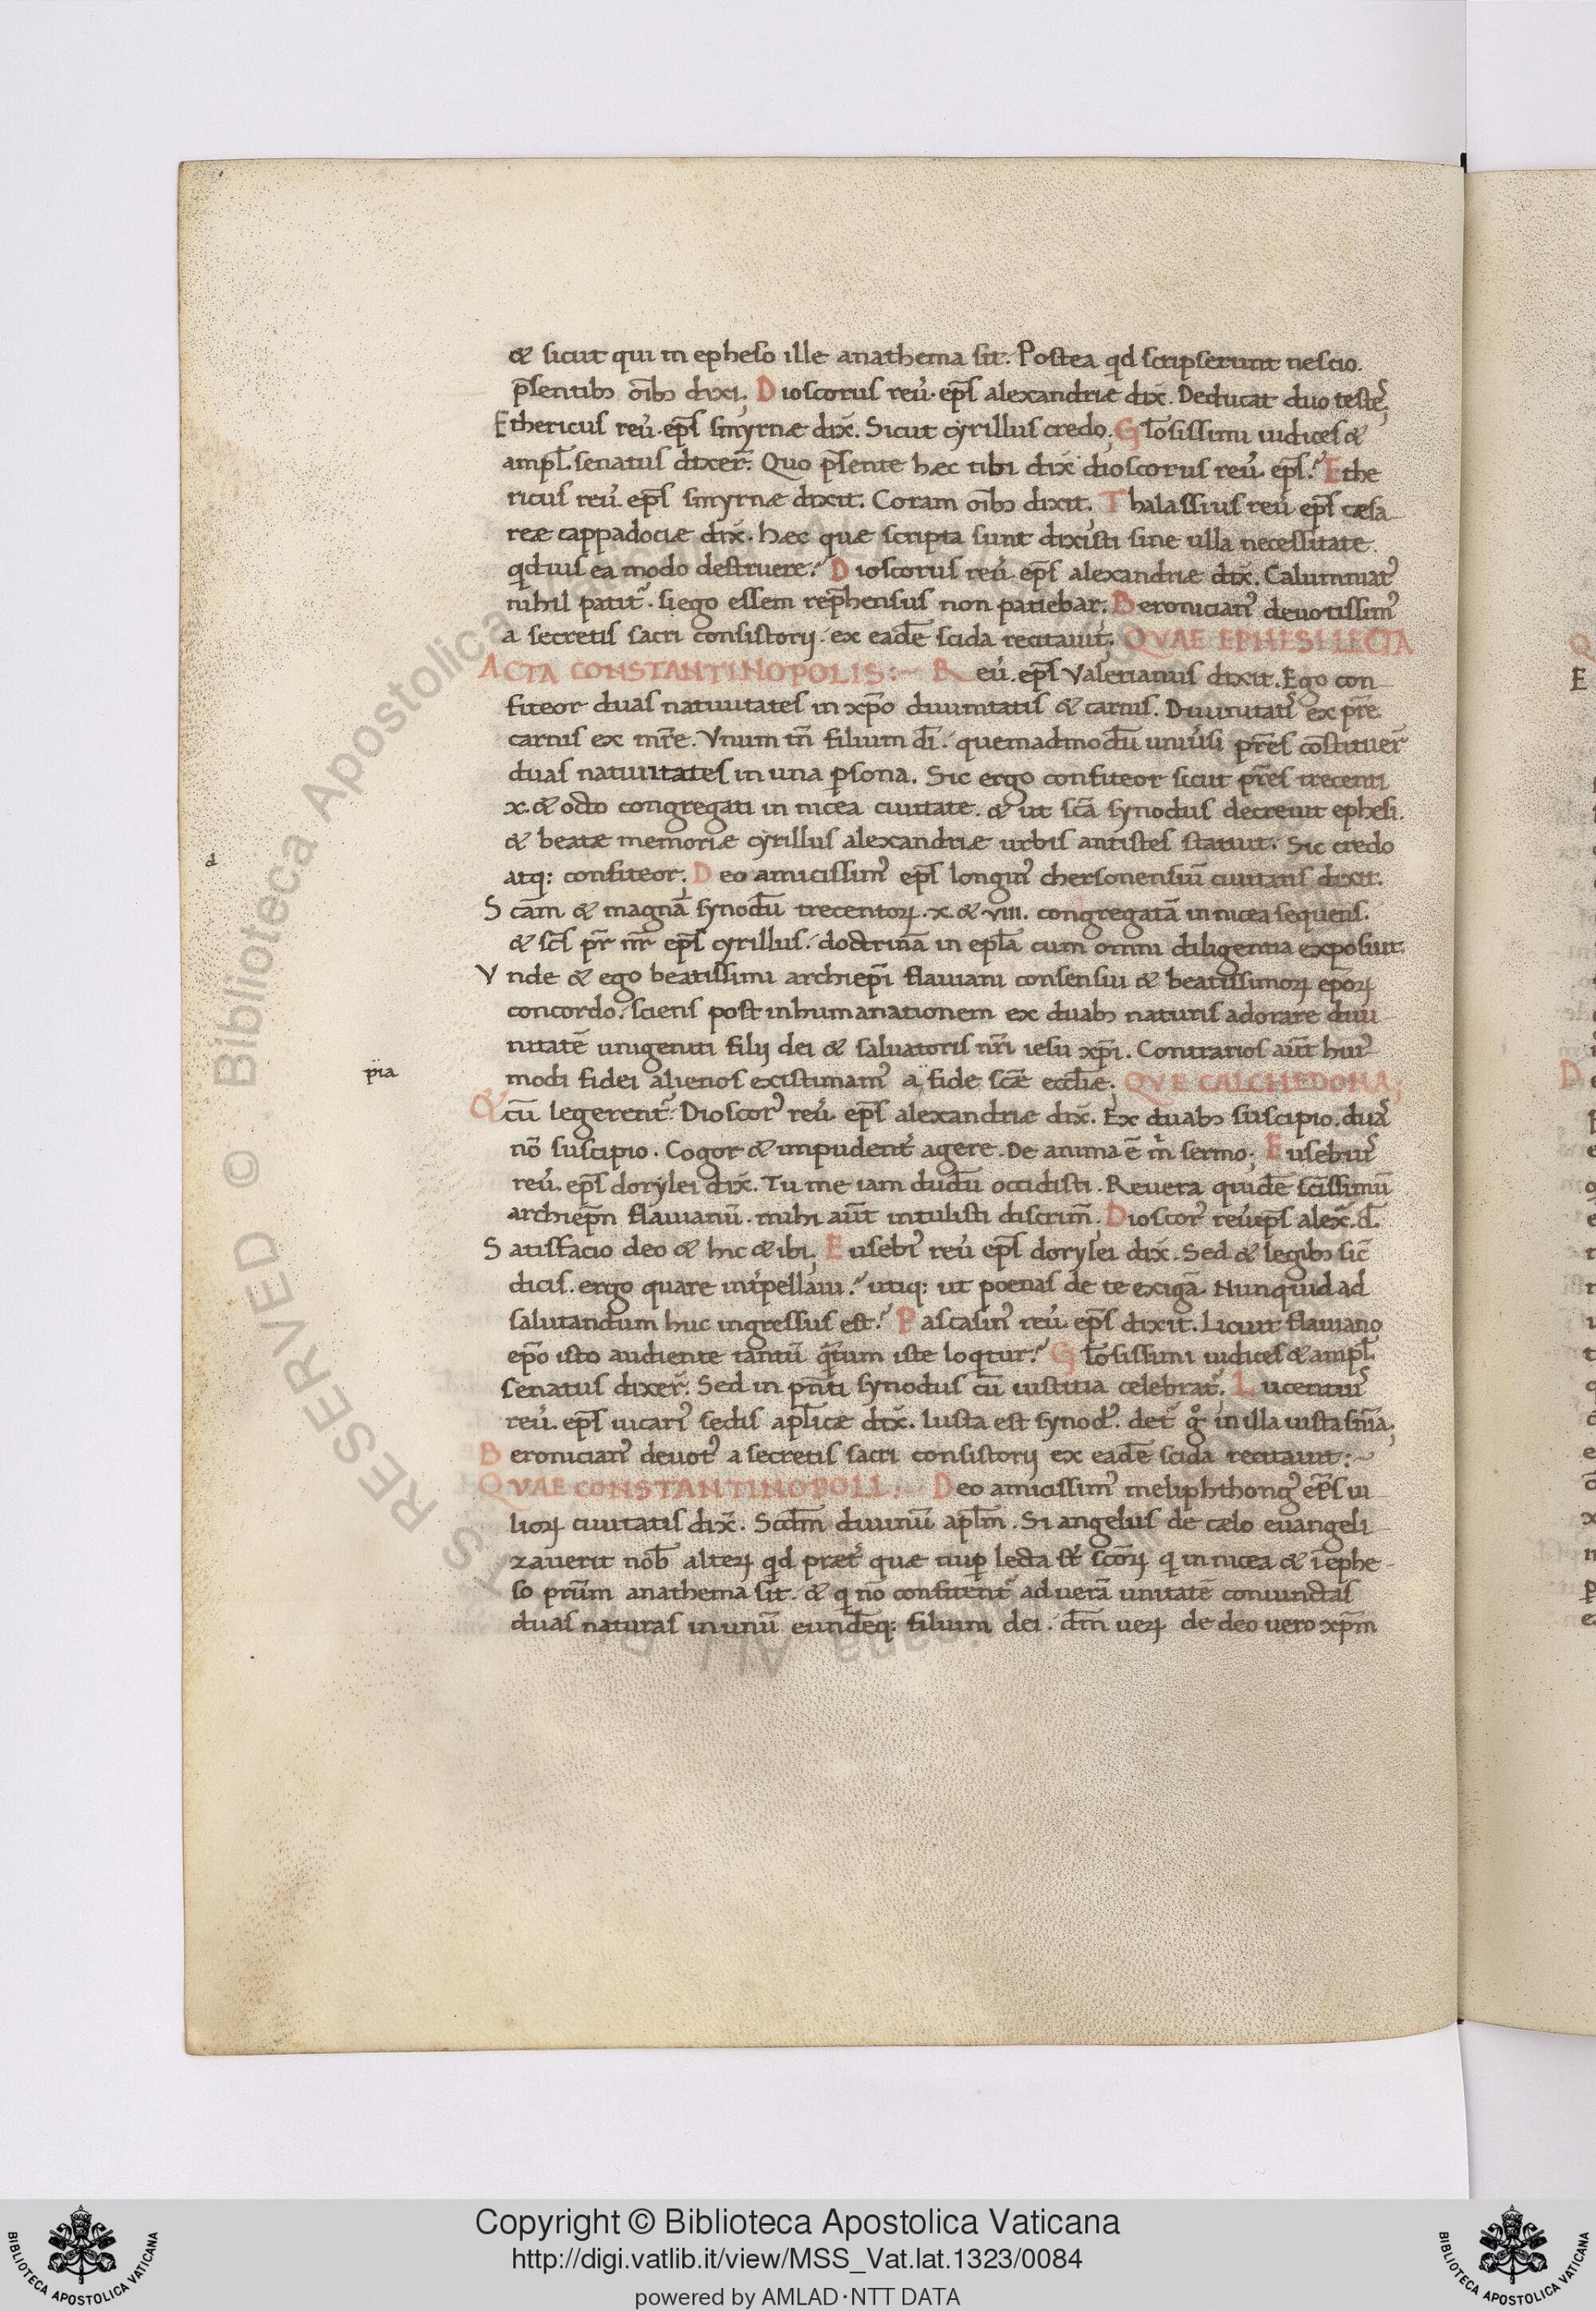 & sicut qui in epheso ille anathema sit. Postea qd scripserunt nescio.
p̄sentib; oīb; dixi; Dioscorus reu̇. ep̄s alexandriæ dix̄. Deducat duo testeˢ;
Ethericus reu̇. ep̄s smyrnæ dix̄. Sicut cyrillus credo; Gl̄osissimi iudices &
ampl̄. senatus dixer̄. Quo p̄sente hæc tibi dix̄ dioscorus reu̇. ep̄s? Ethe
ricus reu̇. ep̄s smyrnæ dixit. Coram oīb; dixit. Thalassius reu̇ ep̄s cæsa-
reæ cappadociæ dix̄. hæc quæ scripta sunt dixisti sine ulla necessitate.
qd uis ea modo destruere? Dioscorus reu̇. ep̄s alexandriæ dix̄. Calumniat᷑
nihil patit᷑. si ego essem rep̄hensus non patiebar. Beronicianꝰ deuotissimꝰ
a secretis sacri consistorij. ex eadē scida recitauit; QVAE EPHESI LECTA
ACTA CONSTANTINOPOLIS:~ Reu̇. ep̄s Valerianus dixit. Ego con-
fiteor duas natiuitates in xp̄o diuinitatis & carnis. Diuinitatiˢ ex pr̄e
carnis ex mr̄e. Vnum tn̄ filium dī. quemadmodū uniu̇si pr̄es cōstituer̄
duas natiuitates in una psona. Sic ergo confiteor sicut pr̄es trecenti
x. & octo congregati in nicea ciuitate. & ut scā synodus decreuit ephesi.
& beatæ memoriæ cyrillus alexandriæ urbis antistes statuit. Sic credo
atq: confiteor. Deo amicissimꝰ ep̄s longinꝰ chersonensiū ciuitatis dixit.
Scām & magnā synodū trecentoꝝ. x. & viii. congregatā in nicea sequens.
& scs̄ pr̄ nr̄ ep̄s cyrillus. doctrinā in epl̄a cum omni diligentia exposuit.
Vnde & ego beatissimi archiep̄i flauiani consensui & beatissimoꝝ ep̄oꝝ
concordo. sciens post inhumanationem ex duab; naturis adorare diui
nitatē unigeniti filij dei & saluatoris nr̄i iesu xp̄i. Contrarios aūt huiꝰ
pia
modi fidei alienos existimamꝰ a fide scǣ eccl̄iæ; QVE CALCHEDONA;
cū legerent᷑. Dioscorꝰ reu̇. ep̄s alexandriæ dix̄. Ex duab; suscipio. duaˢ
nō suscipio. Cogor & impudent᷑ agere. De anima ē m̍ sermo; Eusebiꝰ
reu̇. ep̄s dorylei dix̄. Tu me iam dudū occidisti. Reuera quidē scīssimū
archiep̄n flauianū. mihi aūt intulisti discrim̄. Dioscorꝰ reu̇ ep̄s alex̄. d̄.
Satisfacio deo & hic & ibi; Eusebiꝰ reu̇ ep̄s dorylei dix̄. Sed & legib; sic̄
dicis. ergo quare int᷑pellaui? utiq: ut poenas de te exigā. Nunquid ad
salutandum huc ingressus est? Pascasinꝰ reu̇. ep̄s dixit. Licuit flauiano
ep̄o isto audiente tantū qͣtum iste loqitur? Gl̄osissimi iudices & ampl̄.
senatus dixer̄. Sed in pn̄ti synodus cū iustitia celebrat᷑. Lucentiꝰ
reu̇. ep̄s uicariꝰ sedis apl̄icæ dix̄. Iusta est synodꝰ. det᷑ g̊ in illa iusta sn̄ia;
Beronicianꝰ deuotꝰ a secretis sacri consistorij ex eadē scida recitauit:~
QVAE CONSTANTINOPOLI:~ Deo amicissimꝰ meliphthongꝰ ep̄s iu
lioꝝ ciuitatis dix̄. Scd̄m diuinū apl̄m. Si angelus de cælo euangeli-
zauerit nob̄ alteꝝ qd præt᷑ quæ nup lecta st̄ scōꝝ q in nicea & ī ephe-
so prīm anathema sit. & q nō confitent᷑ ad uerā unitatē coniunctas
duas naturas in unū eundēq: filium dei. dm̄ ueꝝ de deo uero xp̄m
Copyright © Biblioteca Apostolica Vaticana
http://digi.vatlib.it/view/MSS_Vat.lat.1323/0084
powered by AMLAD·NTT DATA